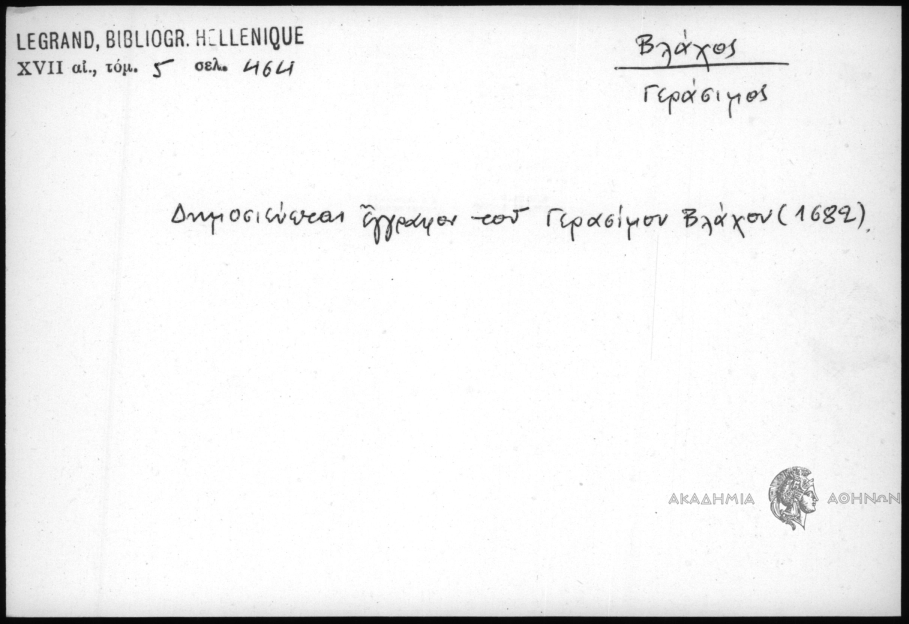 LEGRAND, BIBLIOGR. HELLENIQUE
XVII αἰ., τόμ. 5 σελ. 464
Βλάχος
Γεράσιμος
Δημοσιεύεται ἔγγραφον τοῦ Γερασίμου Βλάχου (1682).
ΑΚΑΔΗΜΙΑ ΑΘΗΝΩΝ